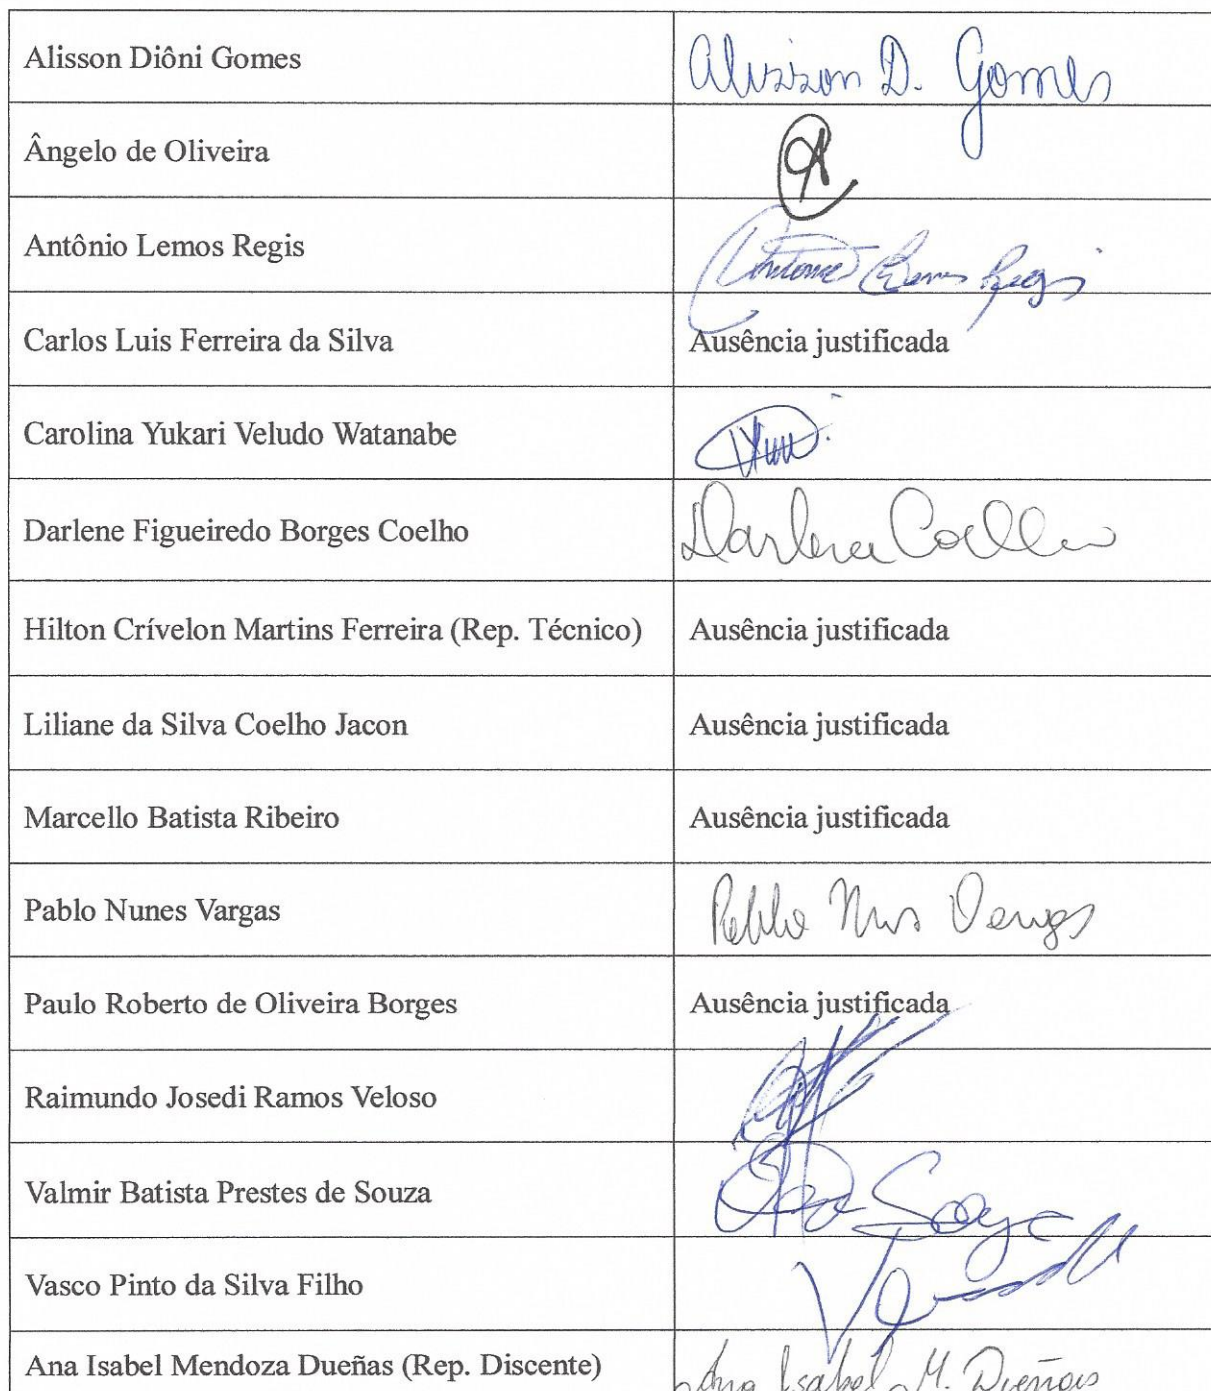 Alisson Diôni Gomes Alisson D. Gomes
Ângelo de Oliveira
Antônio Lemos Regis Antonio Lemos Regis
Carlos Luis Ferreira da Silva Ausência justificada
Carolina Yukari Veludo Watanabe
Darlene Figueiredo Borges Coelho Darlene Coelho
Hilton Crívelon Martins Ferreira (Rep. Técnico) Ausência justificada
Liliane da Silva Coelho Jacon Ausência justificada
Marcello Batista Ribeiro Ausência justificada
Pablo Nunes Vargas Pablo Nunes Vargas
Paulo Roberto de Oliveira Borges Ausência justificada
Raimundo Josedi Ramos Veloso
Valmir Batista Prestes de Souza
Vasco Pinto da Silva Filho
Ana Isabel Mendoza Dueñas (Rep. Discente) Ana Isabel M. Dueñas